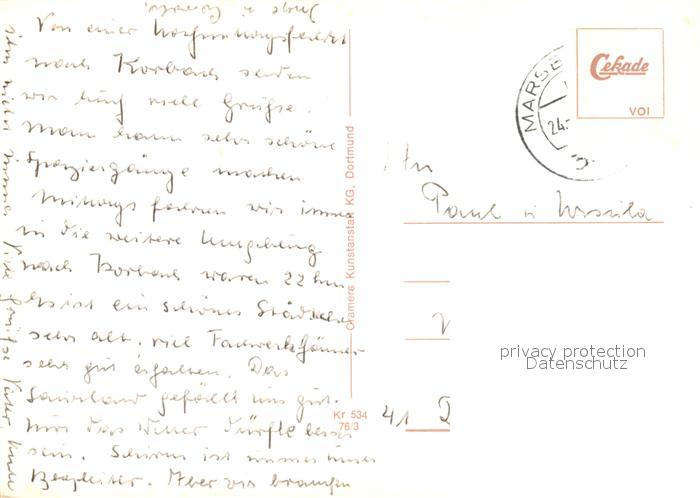 Von einer
nach Korbach senden
wir Euch viele Grüsse.
Man kann sehr schöne
Spaziergänge machen
Mittags fahren wir immer
in die weitere Umgebung
nach Korbach waren 22 km
Es ist ein schönes Städtchen
sehr alt, viel Fachwerkhäuser
sehr gut erhalten. Das
Sauerland gefällt uns gut.
Nur das Wetter dürfte besser
sein. Schirm ist immer unser
Begleiter. Aber wir brauchen
ihn nicht immer Viele Grüsse
Cramers Kunstanstalt KG, Dortmund
Kr 534
76/3
Cekade
VOI
MARSB
24.
An
Paul u Ursula
41
privacy protection
Datenschutz